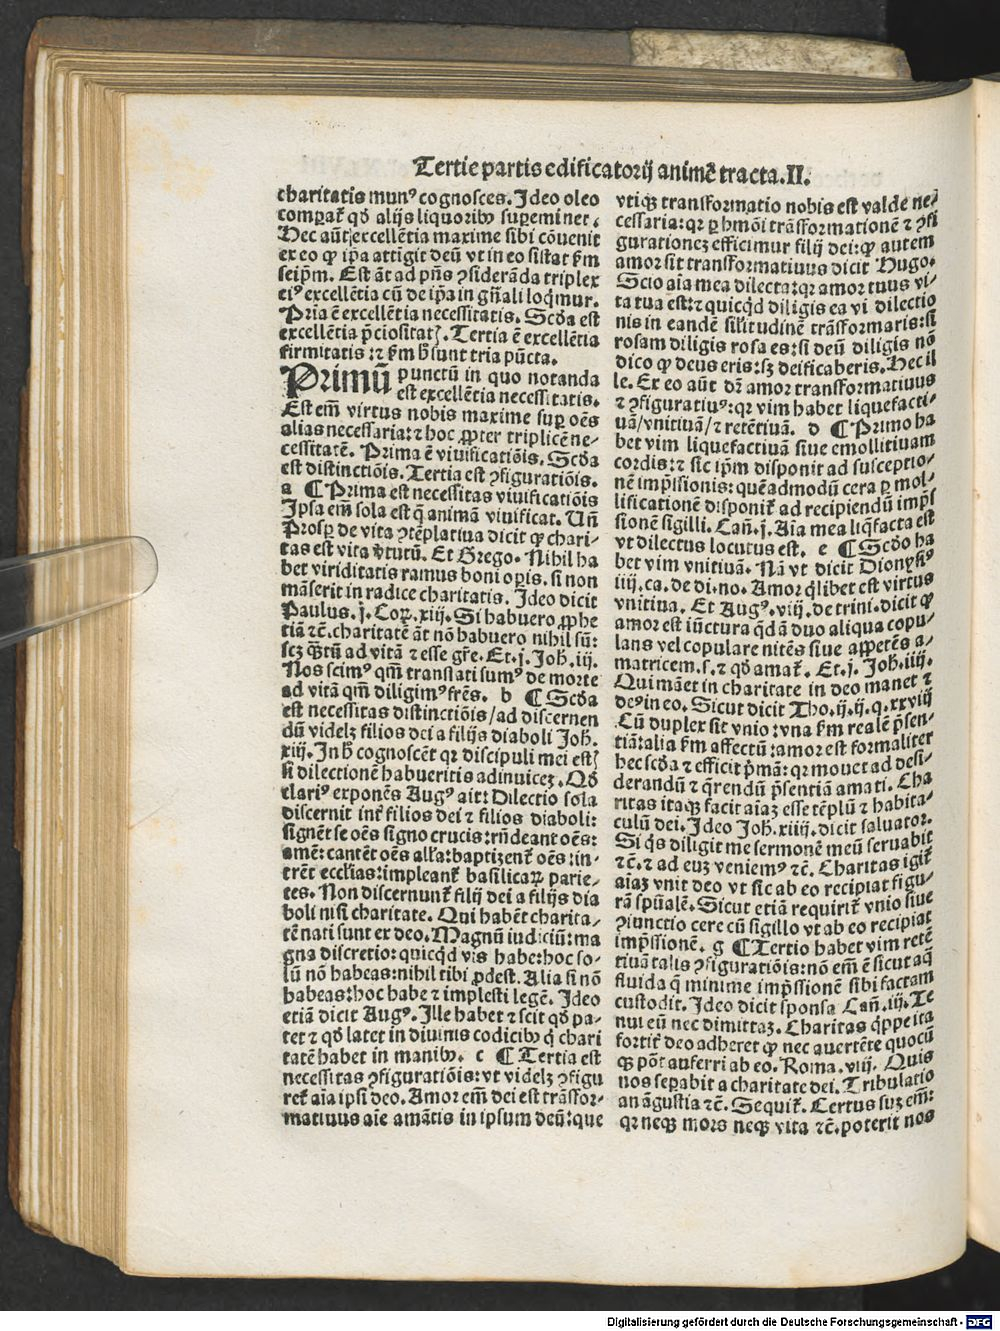 Tertie partis edificatorij anime᷑ tracta.II.
charitatis munꝰ cognosces. Ideo oleo
comꝑat᷑ qđ alijs liquoribꝫ suꝑeminet.
Hec aūt excellētia maxime sibi cōuenit
ex eo ꝙ ip̄a attigit deū vt in eo sistat ẜm
seip̄m. Est āt ad pn̄s ꝯsiderāda triplex
eiꝰ excellētia cū de ip̄a in gn̄ali loq̄mur.
Pria ē excellētia necessitatis. Scđa est
excellētia p̄ciositatꝭ. Tertia ē excellētia
firmitatis: ⁊ ẜm h̄ sunt tria pūcta.
Primū punctū in quo notanda
est excellētia necessitatis.
Est em̄ virtus nobis maxime suꝑ oēs
alias necessaria: ⁊ hoc ꝓpter triplicē ne-
cessitatē. Prima ē viuificatiōis. Scđa
est distinctiōis. Tertia est ꝯfiguratiōis.
a ¶ Prima est necessitas viuificatiōis
Ipsa em̄ sola est q̄ animā viuificat. Un̄
Prosꝑ de vita ꝯtēplatiua dicit ꝙ chari-
tas est vita v̓tutū. Et Grego. Nihil ha
bet viriditatis ramus boni oꝑis. si non
māserit in radice charitatis. Ideo dicit
Paulus. j. Coꝝ. xiij. Si habuero ꝓphe
tiā ⁊c̄. charitatē āt nō habuero nihil sū:
scꝫ q̄ꝫtū ad vitā ⁊ esse gr̄e. Et. j. Joh̄. iij.
Nos scimꝰ qm̄ translati sumꝰ de morte
ad vitā qm̄ diligimꝰ fr̄es. b ¶ Scđa
est necessitas distinctiōis/ad discernen
dū videlꝫ filios dei a filijs diaboli Joh̄.
xiij. In h̄ cognoscēt qꝛ discipuli mei estꝭ
si dilectionē habueritis adinuiceꝫ. Qđ
clariꝰ exponēs Augꝰ ait: Dilectio sola
discernit int᷑ filios dei ⁊ filios diaboli:
signēt se oēs signo crucis: rn̄deant oēs:
amē: cantēt oēs all̄a: baptizent᷑ oēs: in-
trēt ecclias: impleant᷑ basilicaꝝ parie-
tes. Non discernunt᷑ filij dei a filijs dia
boli nisi charitate. Qui habēt charita-
tē nati sunt ex deo. Magnū iudiciū: ma
gna discretio: quicqd vis habe: hoc so-
lū nō habeas: nihil tibi ꝓdest. Alia si nō
habeas: hoc habe ⁊ implesti legē. Ideo
etiā dicit Augꝰ. Ille habet ⁊ scit qđ pa-
tet ⁊ qđ latet in diuinis codicibꝫ q̇ chari
tatē habet in manibꝫ. c ¶ Tertia est
necessitas ꝯfiguratiōis: vt videlꝫ ꝯfigu
ret᷑ aīa ipsi deo. Amor em̄ dei est trāsfor-
matiuus aīe amātis in ipsum deū: que
vtiqꝫ transformatio nobis est valde ne-
cessaria: qꝛ ꝑ hmōi trāsformationē ⁊ ꝯfi
gurationeꝫ efficimur filij dei: ꝙ autem
amor sit transformatiuus dicit Hugo.
Scio aīa mea dilecta: qꝛ amor tuus vi-
ta tua est: ⁊ quicqd diligis ea vi dilectio
nis in eandē silitudinē trāsformaris: si
rosam diligis rosa es: si deū diligis nō
dico ꝙ deus eris: sꝫ deificaberis. Hec il
le. Ex eo aūt dr̄ amor transformatiuus
⁊ ꝯfiguratiuꝰ: qꝛ vim habet liquefacti-
uā/vnitiuā/⁊ retētiuā. d ¶ Primo ha
bet vim liquefactiuā siue emollitiuam
cordis: ⁊ sic ip̄m disponit ad susceptio-
nē imp̄ssionis: quēadmodū cera ꝑ mol-
lificationē disponit᷑ ad recipiendū imp̄s
sionē sigilli. Can̄. j. Aīa mea liq̄facta est
vt dilectus locutus est. e ¶ Scđo ha
bet vim vnitiuā. Nā vt dicit Dionysiꝰ
iiij. ca. de di. no. Amor q̄libet est virtus
vnitiua. Et Augꝰ. viij. de trini. dicit ꝙ
amor est iūctura qđā duo aliqua copu-
lans vel copulare nitēs siue appetēs a-
matricem. s. ⁊ qđ amat᷑. Et. j. Joh̄. iiij.
Qui māet in charitate in deo manet ⁊
deꝰ in eo. Sicut dicit Tho. ij. ij. q. xxviij
Cū duplex sit vnio: vna ẜm realē p̄sen-
tiā: alia ẜm affectū: amor est formaliter
hec scđa ⁊ efficit p̄mā: qꝛ mouet ad desi-
derandū ⁊ q̄rendū p̄sentiā amati. Cha
ritas itaqꝫ facit aīaꝫ esse tēplū ⁊ habita-
culū dei. Ideo Joh̄. xiiij. dicit saluator.
Si q̇s diligit me sermonē meū seruabit
⁊c̄. ⁊ ad euꝫ veniemꝰ ⁊c̄. Charitas igit᷑
aīaꝫ vnit deo vt sic ab eo recipiat figu-
rā spūalē. Sicut etiā requirit᷑ vnio siue
ꝯiunctio cere cū sigillo vt ab eo recipiat
imp̄ssionē. g ¶ Tertio habet vim retē
tiuā talis ꝯfiguratiōis: nō em̄ ē sicut aq̄
fluida q̄ minime imp̄ssionē sibi factam
custodit. Ideo dicit sponsa Can̄. iij. Te
nui eū nec dimittaꝫ. Charitas q̇ppe ita
fortit᷑ deo adheret ꝙ nec auertēte quocū
qꝫ pōt auferri ab eo. Roma. viij. Quis
nos seꝑabit a charitate dei. Tribulatio
an āgustia ⁊c̄. Sequit᷑. Certus suꝫ em̄:
qꝛ neqꝫ mors neqꝫ vita ⁊c̄. poterit nos
Digitalisierung gefördert durch die Deutsche Forschungsgemeinschaft - DFG